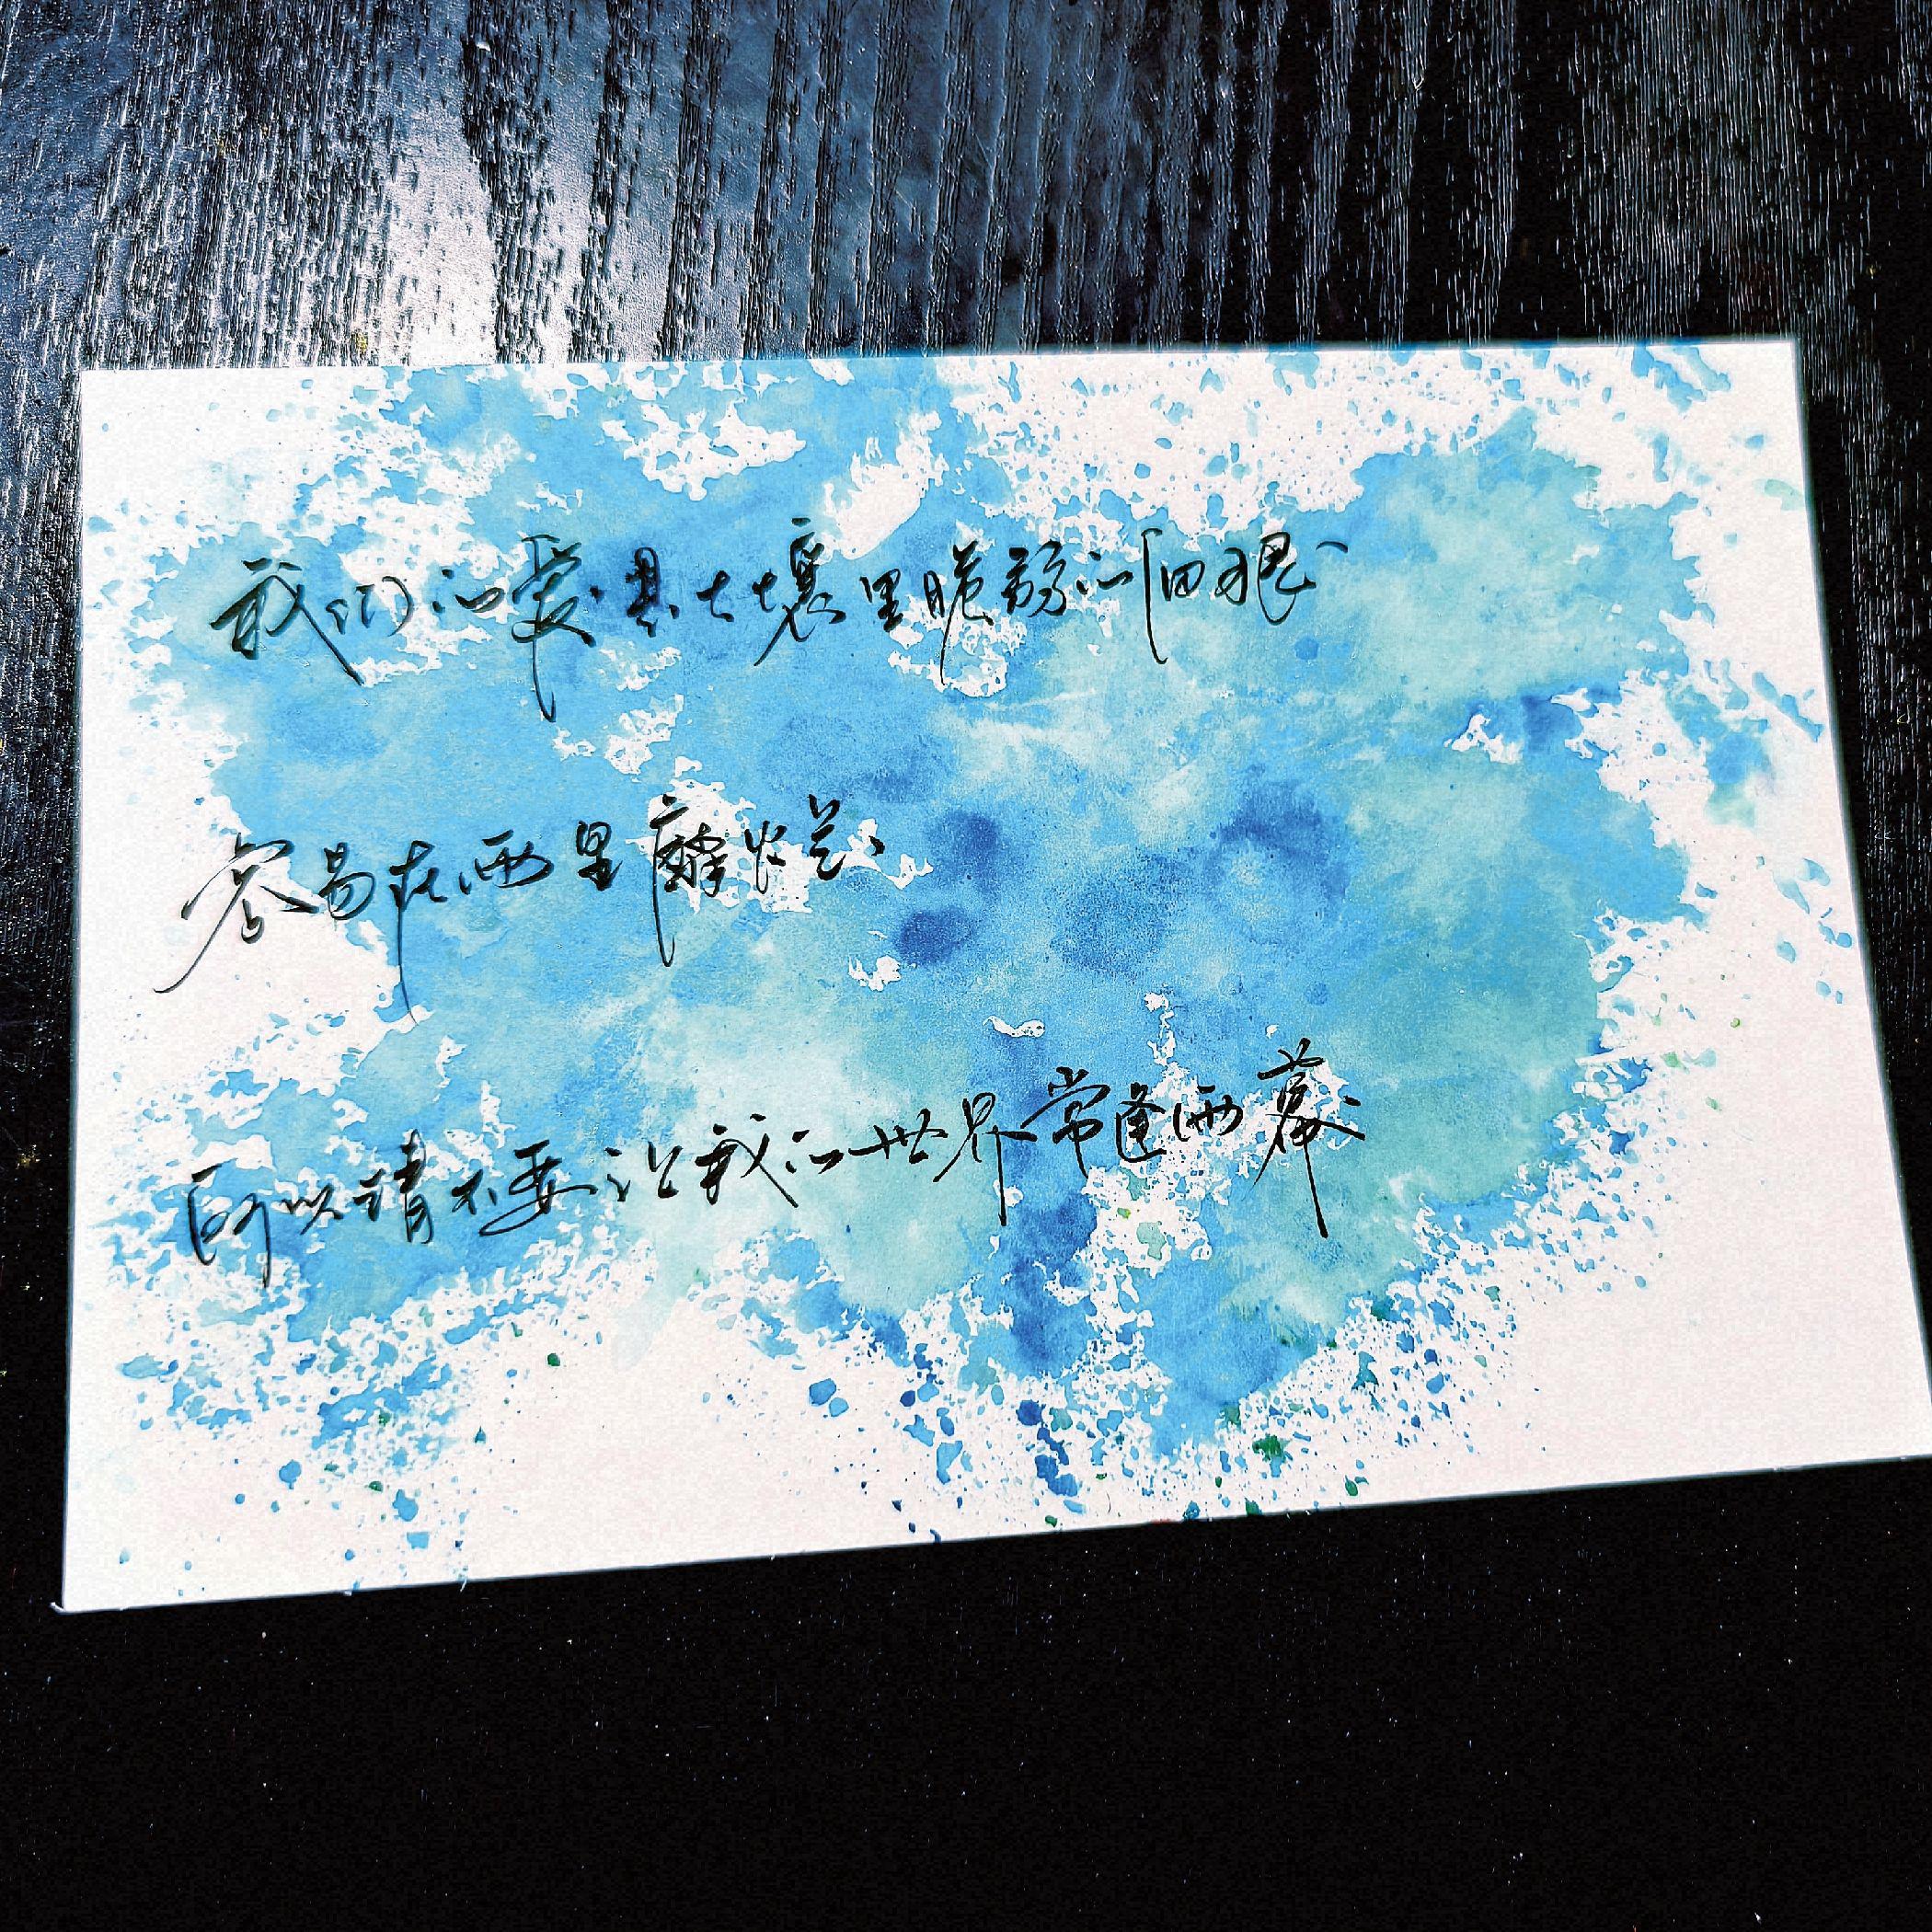 我们的爱是土壤里脆弱的旧根
容易在雨里腐烂
所以请不要让我的世界常逢雨幕